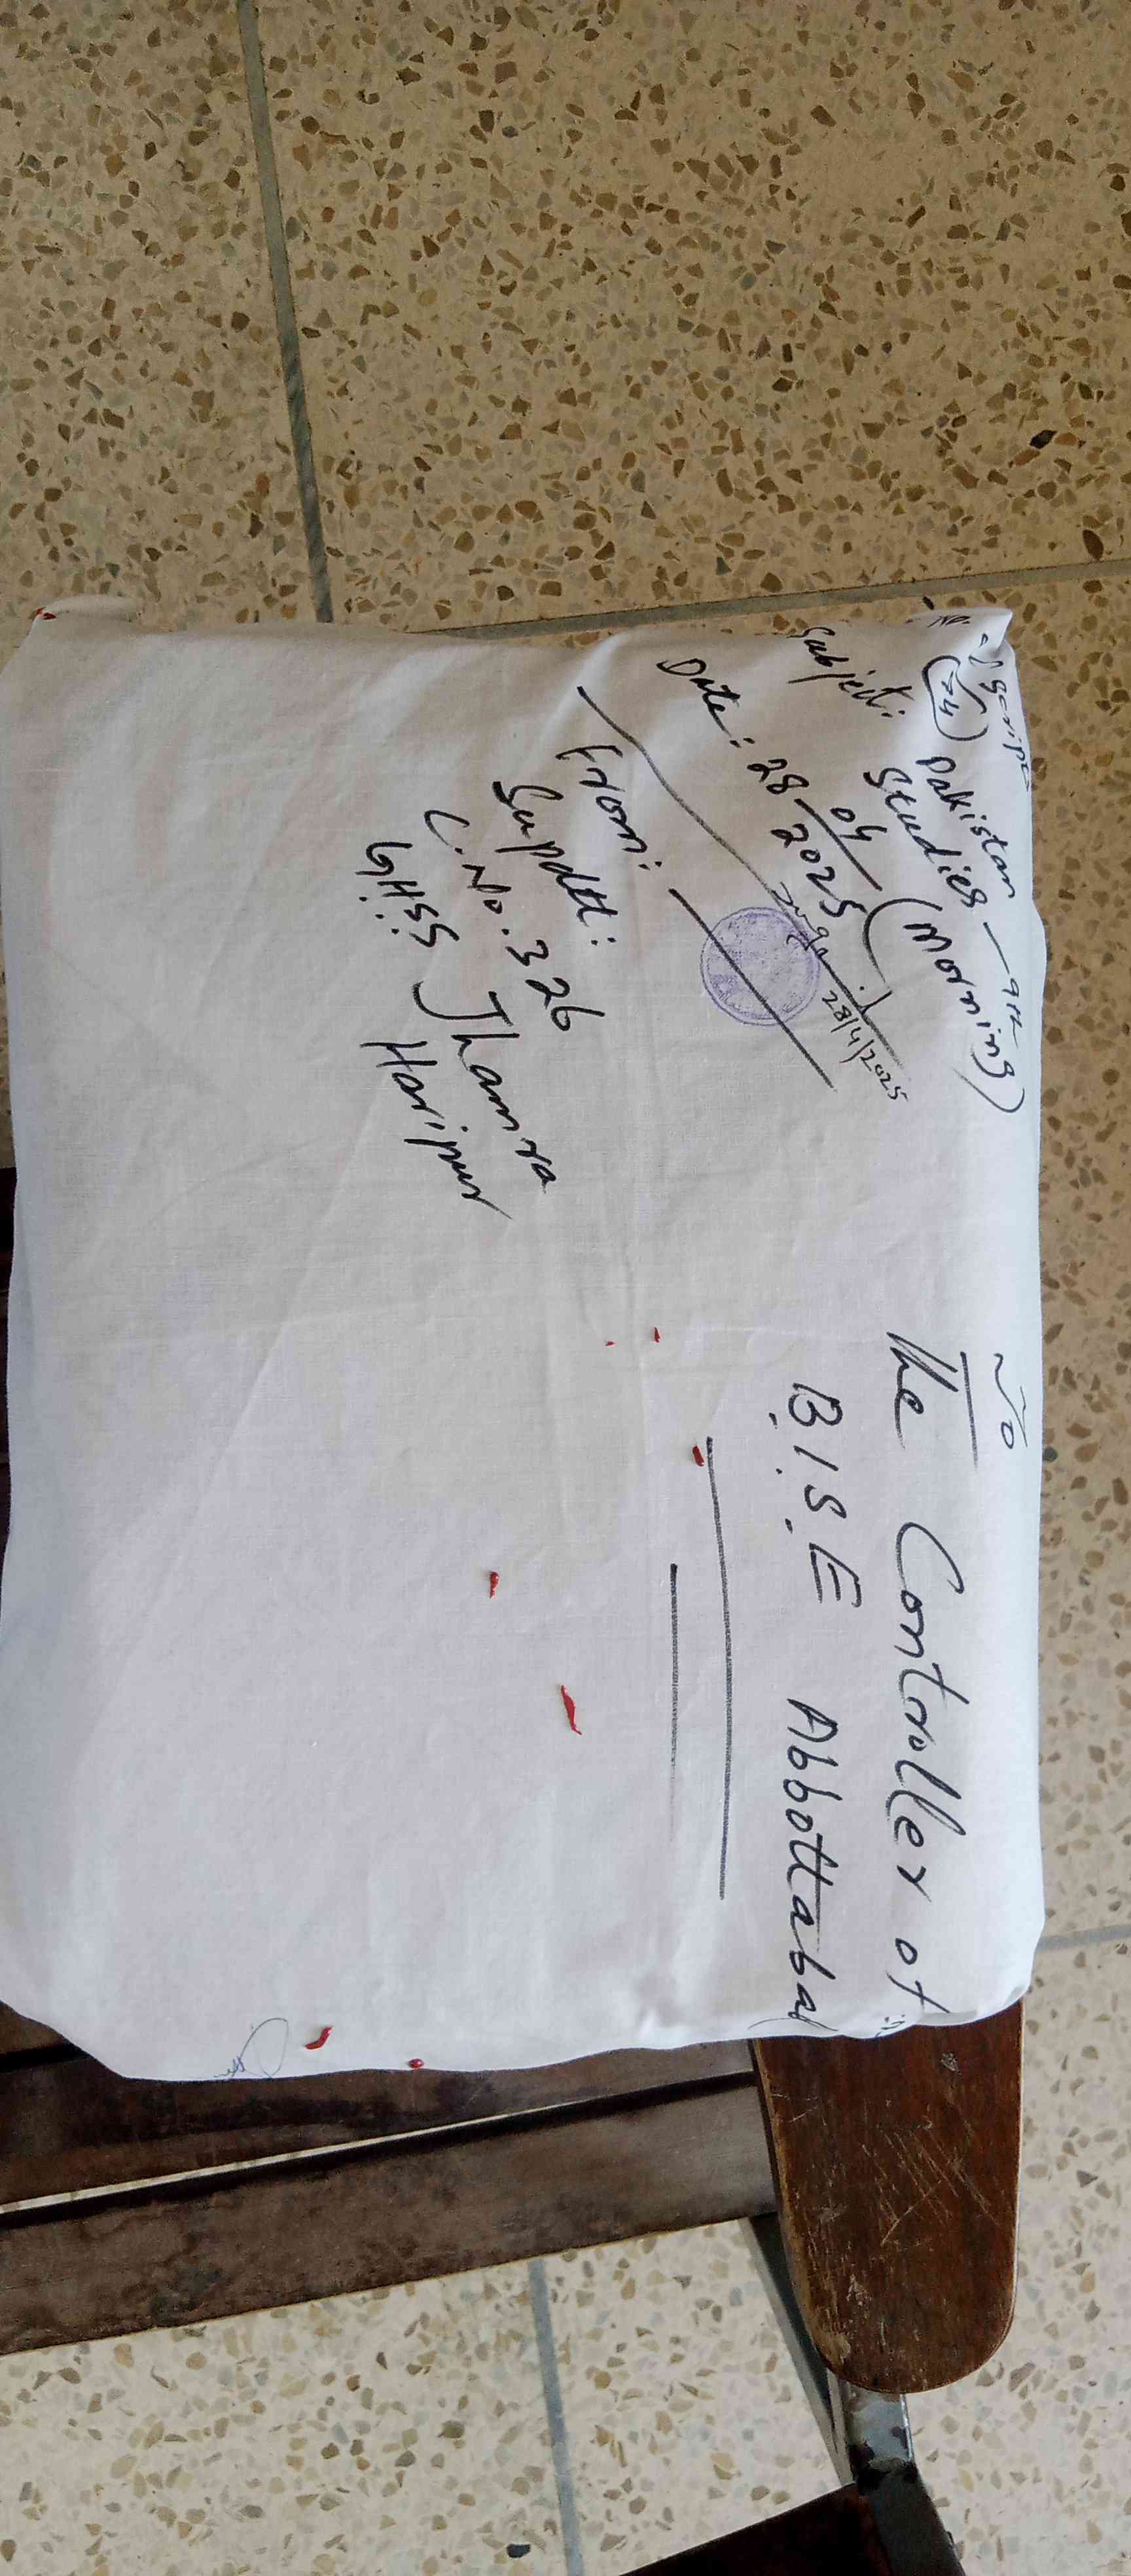 To
The Controller of
B.I.S.E Abbottabad
Scripts
(74)
Subject: Pakistan Studies — 9th
(Morning)
Date: 28/04/2025
28/4/2025
From:
Supdtt:
C.No. 326
GHSS Jhamra
Haripur